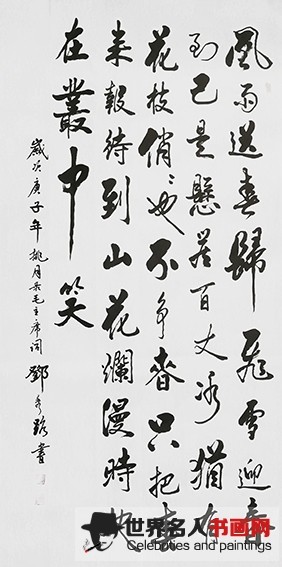 風雨送春歸飛雪迎春
到已是懸崖百丈冰猶有
花枝俏〻也不争春只把春
来報待到山花爛漫時她
在叢中笑
歲次庚子年桃月录毛主席词 鄧書
世界名人书画网
Celebrities and paintings